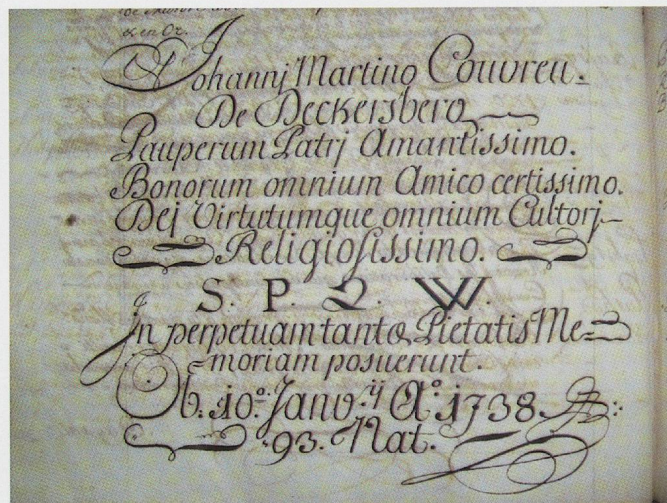 & en Or.
Johannj Martino Couvreu.
De Deckersberg
Pauperum Patrj Amantissimo.
Bonorum omnium Amico certissimo.
Dej Virtutumque omnium Cultorj
Religiosissimo.
S. P. Q. W.
In perpetuam tantæ Pietatis Me=
=moriam posuerunt.
Ob: 10.º Janv.ÿ Aº. 1738.
93. Nat.